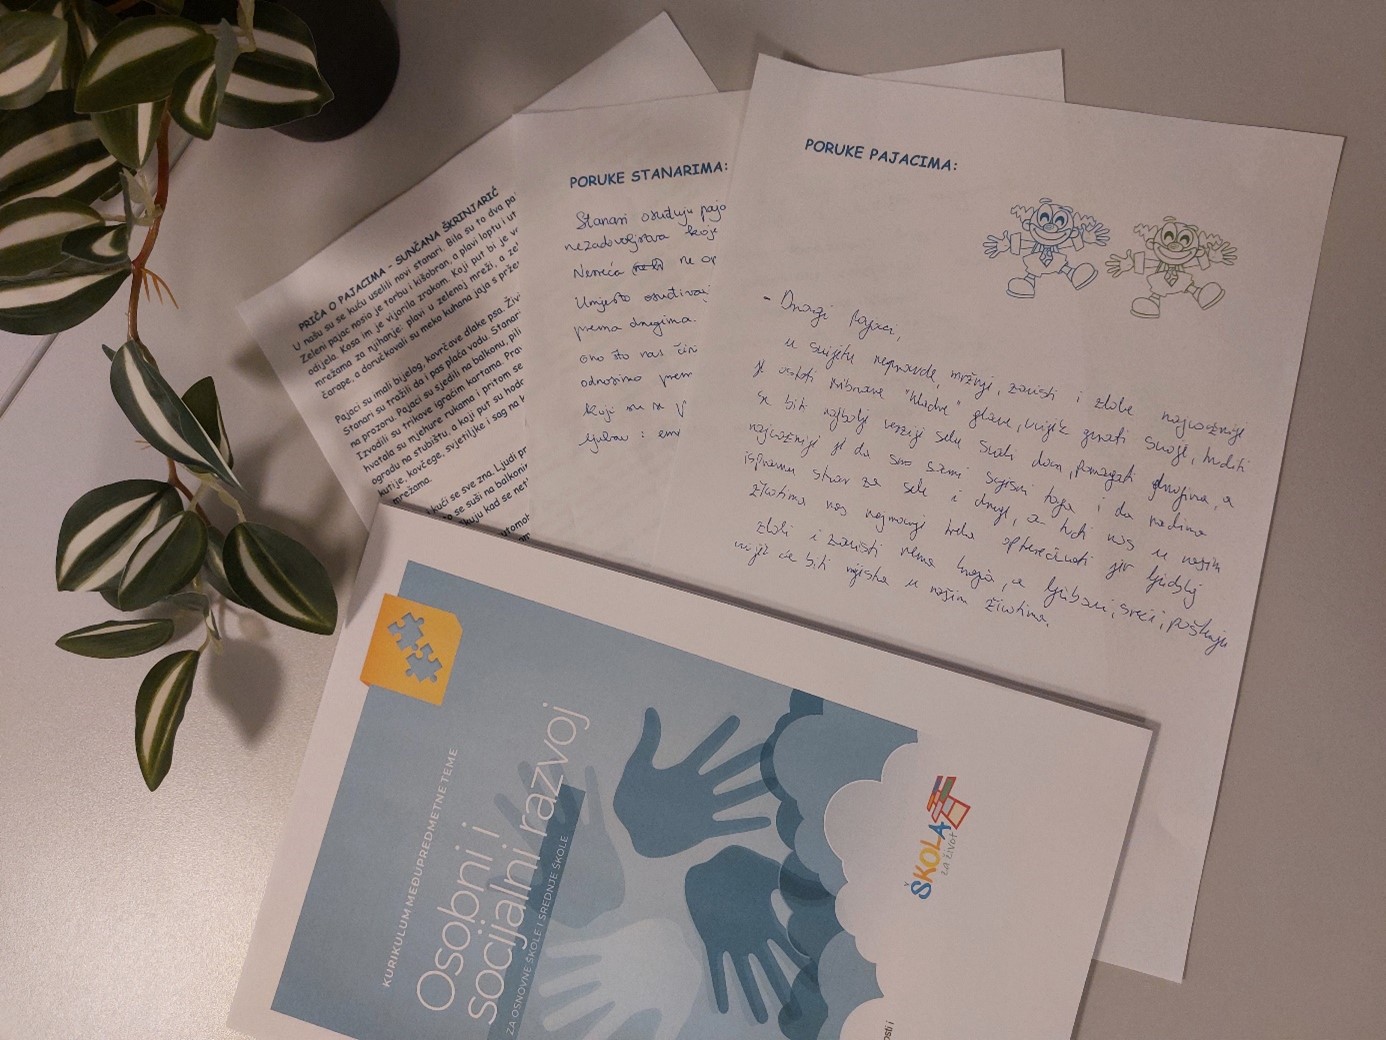 PRIČA O PAJACIMA - SUNČANA ŠKRINJARIĆ
U našu su se kuću uselili novi stanari. Bila su to dva pa
Zeleni pajac nosio je torbu i kišobran, a plavi loptu i ut
odijela. Kosa im je vijorila zrakom. Koji put bi je v
mrežama za njihanje: plavi u zelenoj mreži, a ze
čarape, a doručkovali su meko kuhana jaja s prže
Pajaci su imali bijelog, kovrčave dlake psa. Živ
Stanari su tražili da i pas plaća vodu. Stanari
na prozoru. Pajaci su sjedili na balkonu, pili
Izvodili su trikove igraćim kartama. Prav
hvatala su mjehure rukama i pritom se
ogradu na stubištu, a koji put su hode
kutije, kovčege, svjetiljke i sag na k
mrežama.
kući se sve zna. Ljudi pr
o se suši na balkonim
kuju kad se net
utomob
PORUKE STANARIMA:
Stanari osuđuju paja
nezadovoljstva koje
Nesreća ne op
Umjesto osuđivaj
prema drugima.
ono što nas čin
odnosimo prem
koji su
ljubav : em
PORUKE PAJACIMA:
- Dragi pajaci,
u svijetu nepravde, mržnje, zavisti i zlobe najvažnije
je ostati "hladne" glave, uvijek znati svoje, truditi
se biti najbolji verziji sebe svaki dan, pomagati drugima, a
najvažnije je da smo sami svjesni toga i da radimo
ispravnu stvar za sebe i druge, a tuđi nas u našim
životima nas najmanje treba opterećivati jer ljudskoj
zlobi i zavisti nema kraja, a ljubavi, sreći, poštenju
uvijek će biti mjesta u našim životima.
KURIKULUM MEĐUPREDMETNE TEME
Osobni i
socijalni razvoj
ZA OSNOVNE ŠKOLE I SREDNJE ŠKOLE
ŠKOLA
ZA ŽIVOT
osti i